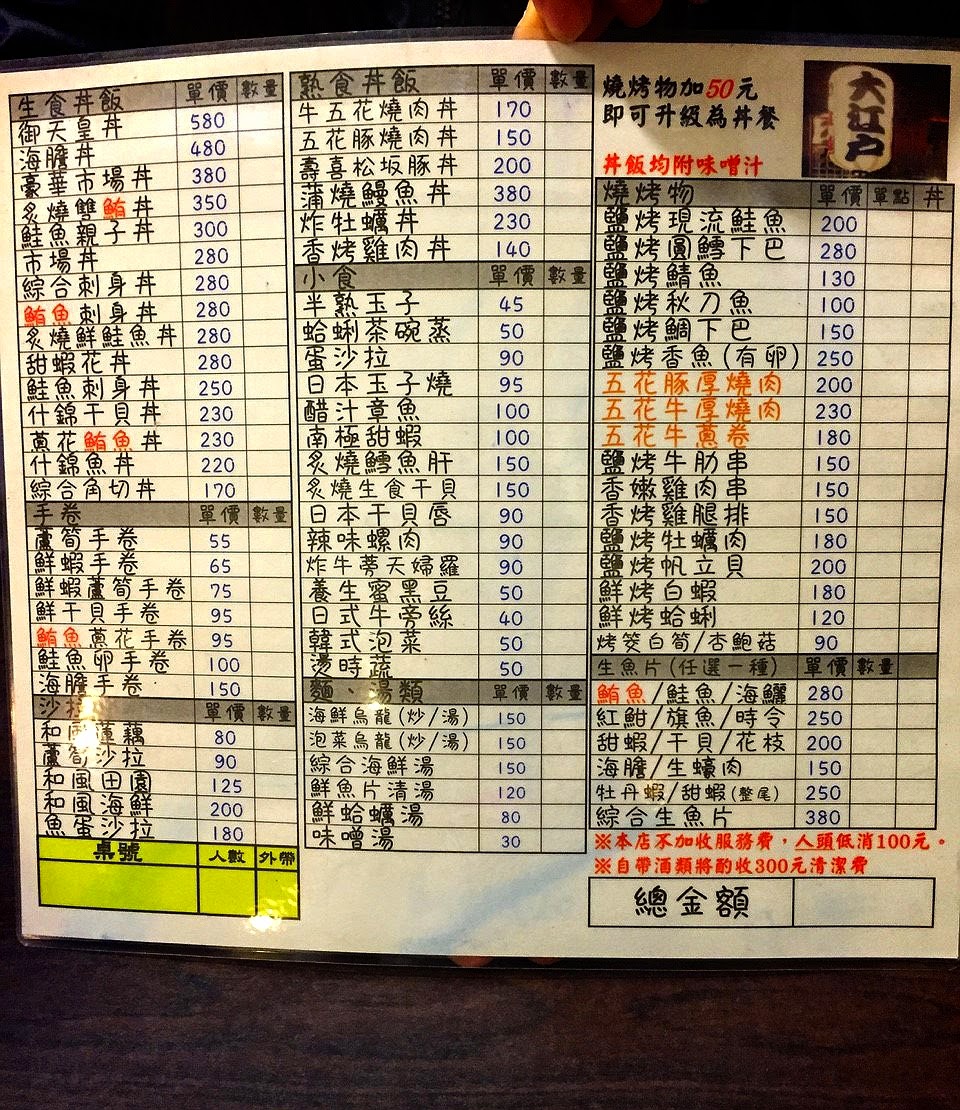 生食丼飯 單價 數量
御天皇丼 580
海膽丼 480
豪華市場丼 380
炙燒雙鮪丼 350
鮭魚親子丼 300
市場丼 280
綜合刺身丼 280
鮪魚刺身丼 280
炙燒鮮鮭魚丼 280
甜蝦花丼 280
鮭魚刺身丼 250
什錦干貝丼 230
蔥花鮪魚丼 230
什錦魚丼 220
綜合角切丼 170
手卷 單價 數量
蘆筍手卷 55
鮮蝦手卷 65
鮮蝦蘆筍手卷 75
鮮干貝手卷 95
鮪魚蔥花手卷 95
鮭魚卵手卷 100
海膽手卷 150
沙拉 單價 數量
和風蓮藕 80
蘆筍沙拉 90
和風田園 125
和風海鮮 200
魚蛋沙拉 180
桌號 人數 外帶
熟食丼飯 單價 數量
牛五花燒肉丼 170
五花豚燒肉丼 150
壽喜松坂豚丼 200
蒲燒鰻魚丼 380
炸牡蠣丼 230
香烤雞肉丼 140
小食 單價 數量
半熟玉子 45
蛤蜊茶碗蒸 50
蛋沙拉 90
日本玉子燒 95
醋汁章魚 100
南極甜蝦 100
炙燒鱈魚肝 150
炙燒生食干貝 150
日本干貝唇 90
辣味螺肉 90
炸牛蒡天婦羅 90
養生蜜黑豆 50
日式牛旁絲 40
韓式泡菜 50
湯時蔬 50
麵、湯類 單價 數量
海鮮烏龍(炒/湯) 150
泡菜烏龍(炒/湯) 150
綜合海鮮湯 150
鮮魚片清湯 120
鮮蛤蠣湯 80
味噌湯 30
燒烤物加50元
即可升級為丼餐
丼飯均附味噌汁
大江戶
燒烤物 單價 單點 丼
鹽烤現流鮭魚 200
鹽烤圓鱈下巴 280
鹽烤鯖魚 130
鹽烤秋刀魚 100
鹽烤鯛下巴 150
鹽烤香魚(有卵) 250
五花豚厚燒肉 200
五花牛厚燒肉 230
五花牛蔥卷 180
鹽烤牛肋串 150
香嫩雞肉串 150
香烤雞腿排 150
鹽烤牡蠣肉 180
鹽烤帆立貝 200
鮮烤白蝦 180
鮮烤蛤蜊 120
烤筊白筍/杏鮑菇 90
生魚片(任選一種) 單價 數量
鮪魚/鮭魚/海鱺 280
紅魽/旗魚/時令 250
甜蝦/干貝/花枝 200
海膽/生蠔肉 150
牡丹蝦/甜蝦(整尾) 250
綜合生魚片 380
※本店不加收服務費，人頭低消100元。
※自帶酒類將酌收300元清潔費
總金額